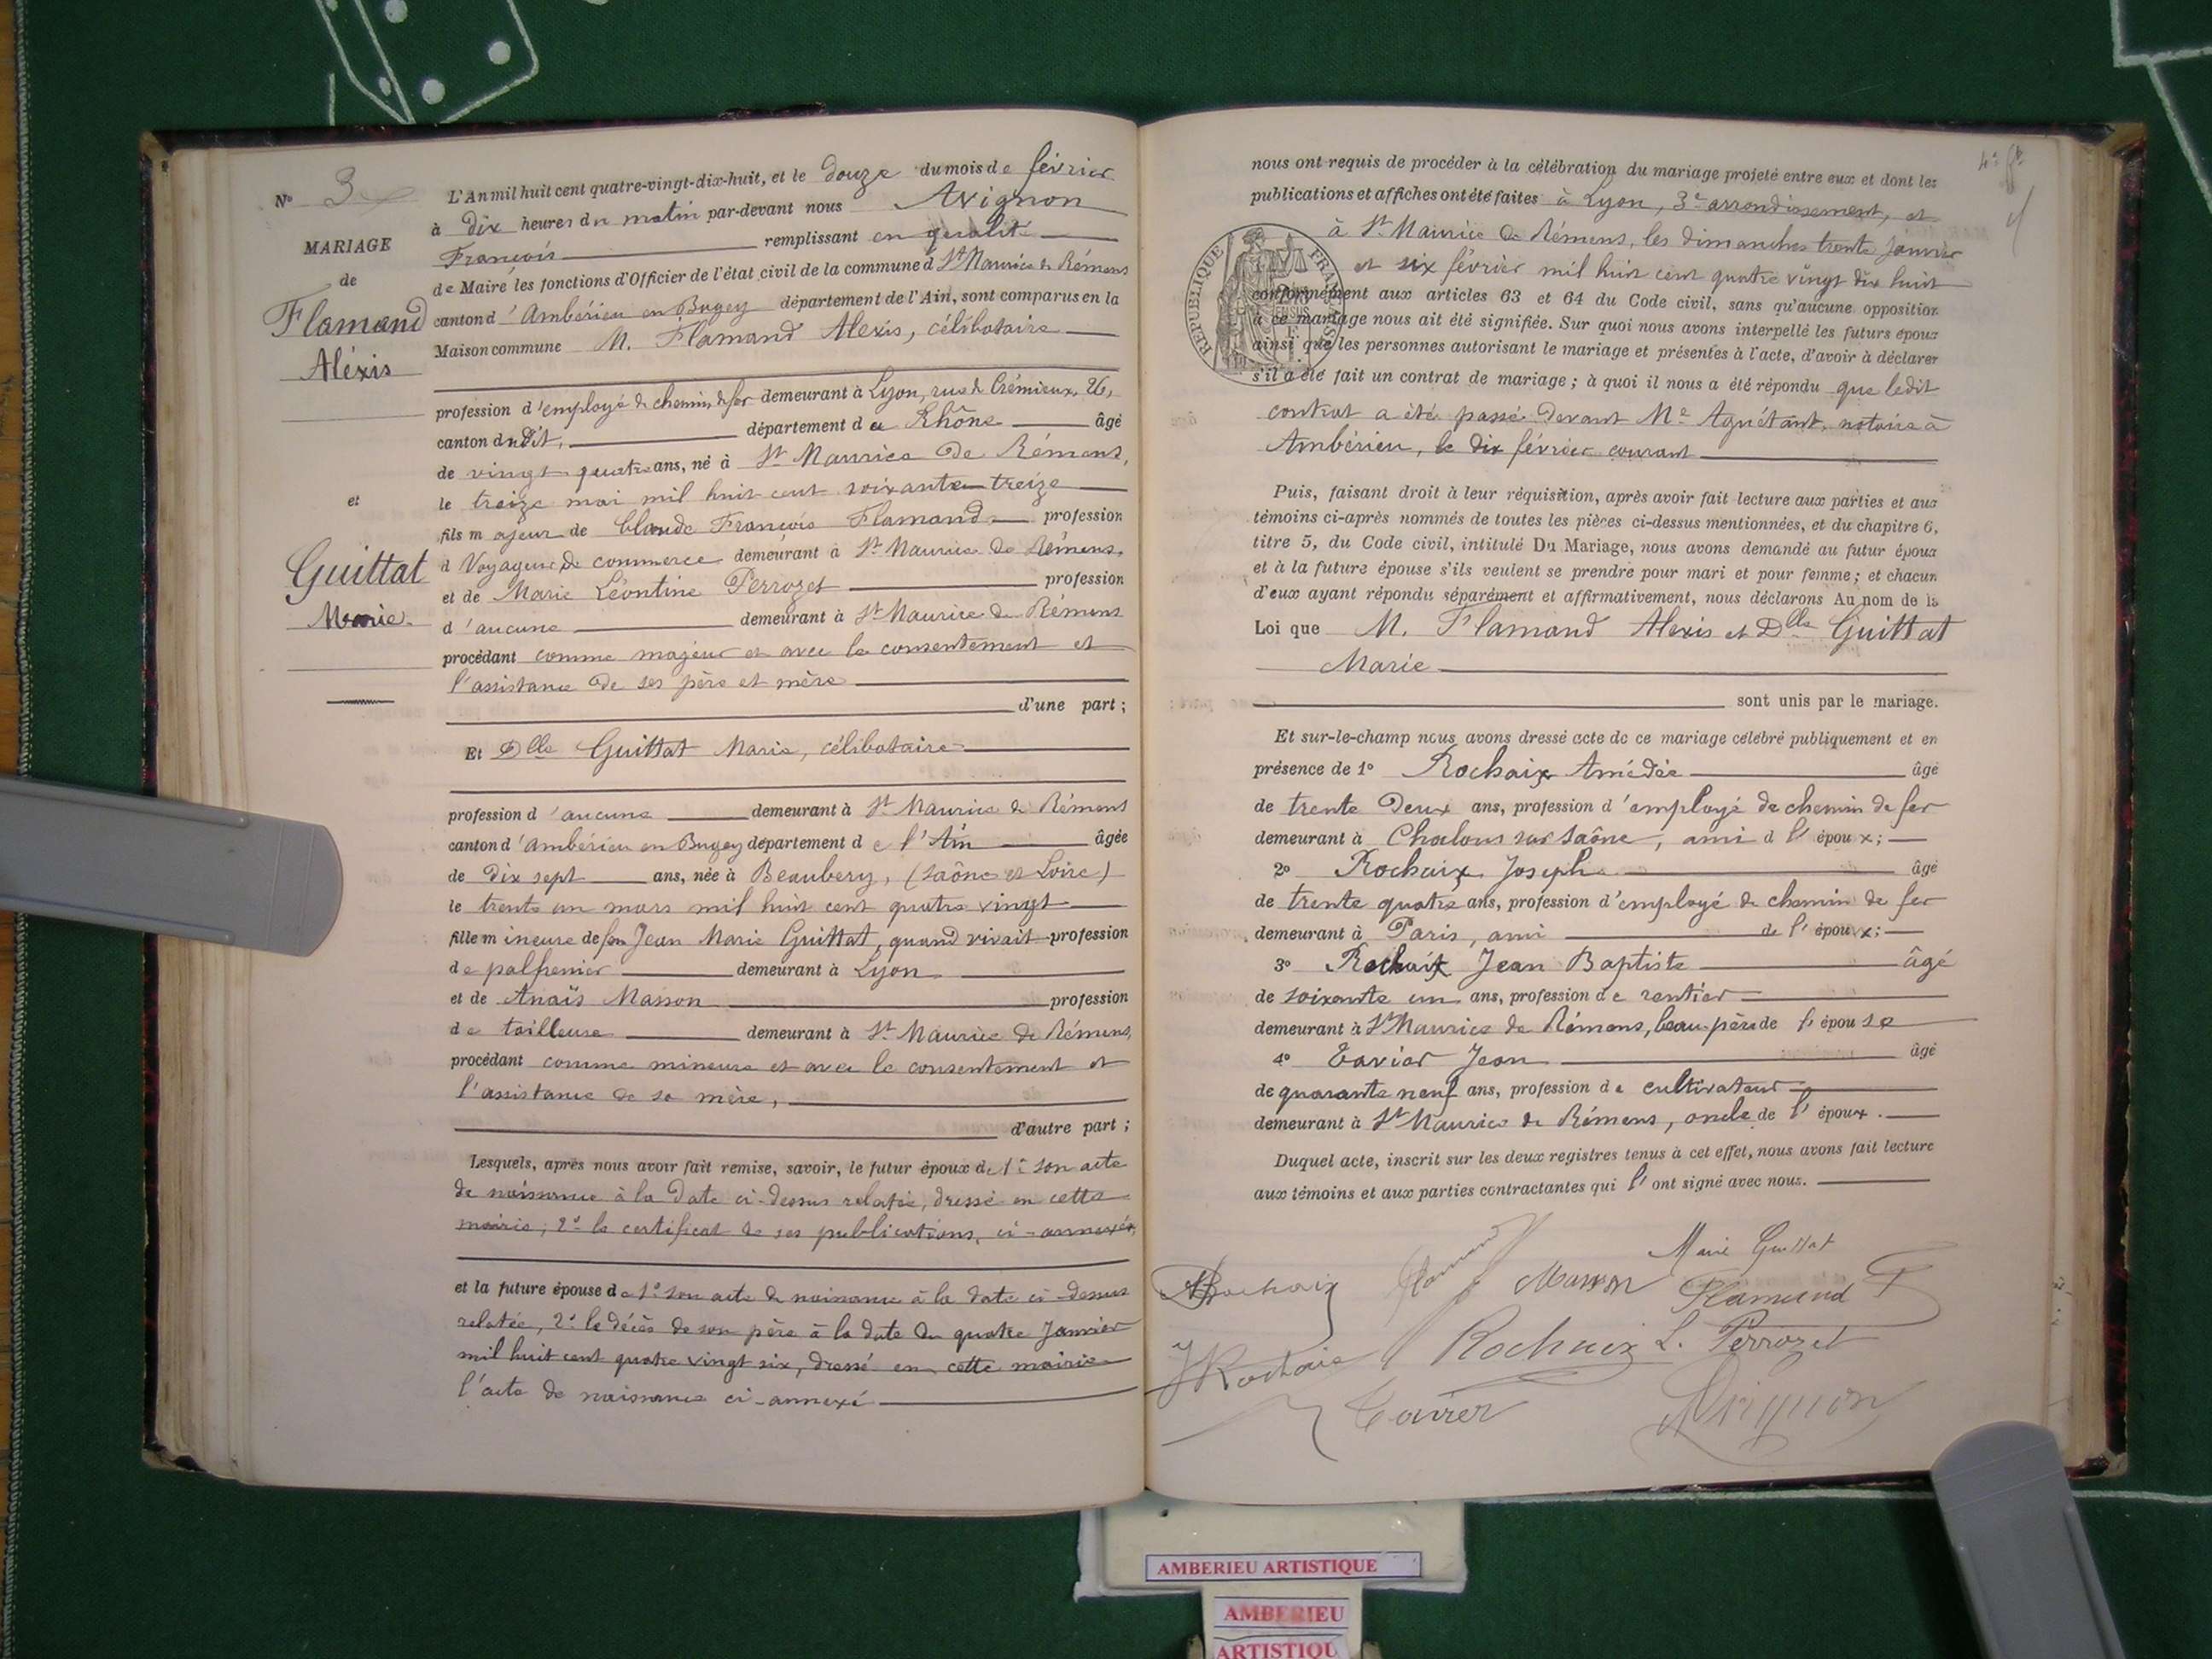 N° 3
MARIAGE
de
Flamand
Aléxis
et
Guittat
Marie
L'An mil huit cent quatre-vingt-dix-huit, et le douze du mois de février
à dix heures du matin par-devant nous Avignon
François remplissant en qualité
de Maire les fonctions d'Officier de l'état civil de la commune d St Maurice de Rémens
canton d'Ambérieu en Bugey département de l'Ain, sont comparus en la
Maison commune M. Flamand Alexis, célibataire
profession d'employé de chemin de fer demeurant à Lyon, rue de Crémieux, 26,
canton dudit, département du Rhône âgé
de vingt quatre ans, né à St Maurice de Rémens,
le treize mai mil huit cent soixante treize
fils majeur de Claude François Flamand profession
d Voyageur de commerce demeurant à St Maurice de Rémens,
et de Marie Léontine Perrozet profession
d'aucune demeurant à St Maurice de Rémens
procédant comme majeur et avec le consentement et
l'assistance de ses père et mère
d'une part ;
Et Dlle Guittat Marie, célibataire
profession d'aucune demeurant à St Maurice de Rémens
canton d'Ambérieu en Bugey département de l'Ain âgée
de dix sept ans, née à Beaubery, (Saône et Loire)
le trente un mars mil huit cent quatre vingt
fille mineure de feu Jean Marie Guittat, quand vivait profession
de palfrenier demeurant à Lyon
et de Anaïs Masson profession
de tailleuse demeurant à St Maurice de Rémens,
procédant comme mineure et avec le consentement et
l'assistance de sa mère,
d'autre part ;
Lesquels, après nous avoir fait remise, savoir, le futur époux de 1° son acte
de naissance à la date ci-dessus relatée, dressé en cette
mairie, 2° le certificat de ses publications, ci-annexés,
et la future épouse de 1° son acte de naissance à la date ci-dessus
relatée, 2° le décès de son père à la date du quatre Janvier
mil huit cent quatre vingt six, dressé en cette mairie
l'acte de naissance ci-annexé
nous ont requis de procéder à la célébration du mariage projeté entre eux et dont les
publications et affiches ont été faites à Lyon, 3e arrondissement, et
à St Maurice de Rémens, les dimanches trente janvier
et six février mil huit cent quatre vingt dix huit
REPUBLIQUE FRANÇAISE
conformément aux articles 63 et 64 du Code civil, sans qu'aucune opposition
à ce mariage nous ait été signifiée. Sur quoi nous avons interpellé les futurs époux
ainsi que les personnes autorisant le mariage et présentes à l'acte, d'avoir à déclarer
s'il a été fait un contrat de mariage ; à quoi il nous a été répondu que ledit
contrat a été passé devant Me Aguétant, notaire à
Ambérieu, le dix février courant
Puis, faisant droit à leur réquisition, après avoir fait lecture aux parties et aux
témoins ci-après nommés de toutes les pièces ci-dessus mentionnées, et du chapitre 6,
titre 5, du Code civil, intitulé Du Mariage, nous avons demandé au futur époux
et à la future épouse s'ils veulent se prendre pour mari et pour femme ; et chacun
d'eux ayant répondu séparément et affirmativement, nous déclarons Au nom de la
Loi que M. Flamand Alexis et Dlle Guittat
Marie
sont unis par le mariage.
Et sur-le-champ nous avons dressé acte de ce mariage célébré publiquement et en
présence de 1° Rochaix Amédée âgé
de trente deux ans, profession d'employé de chemin de fer
demeurant à Chalons sur Saône, ami d l'époux ;
2° Rochaix Joseph âgé
de trente quatre ans, profession d'employé de chemin de fer
demeurant à Paris, ami de l'époux ;
3° Rochaix Jean Baptiste âgé
de soixante un ans, profession de rentier
demeurant à St Maurice de Rémens, beau-père de l'épouse
4° Tavier Jean âgé
de quarante neuf ans, profession de cultivateur
demeurant à St Maurice de Rémens, oncle de l'époux.
Duquel acte, inscrit sur les deux registres tenus à cet effet, nous avons fait lecture
aux témoins et aux parties contractantes qui l'ont signé avec nous.
Marie Guittat
ARochaix Flamand Masson Flamand
JRochaix Rochaix L. Perrozet
Tavier Avignon
AMBERIEU ARTISTIQUE
AMBERIEU
ARTISTIQU